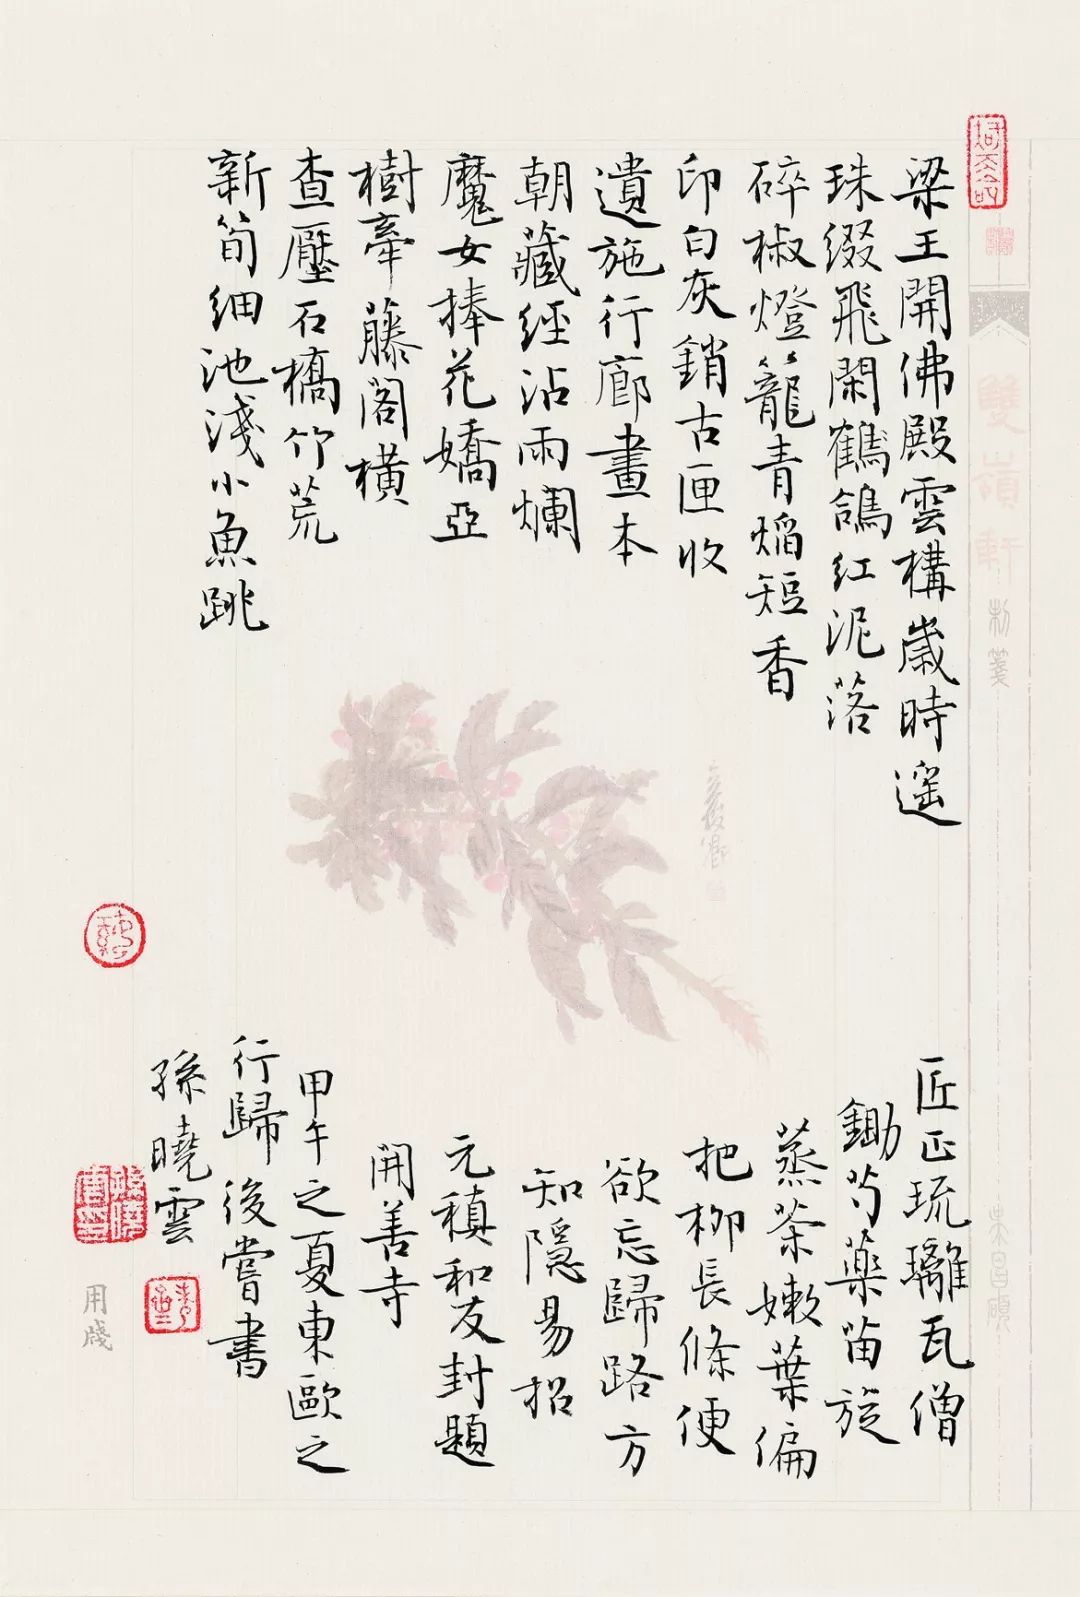 梁王開佛殿雲構歲時遥
珠缀飛閑鶴鴿紅泥落
碎椒燈籠青焰短香
印白灰銷古匣收
遺施行廊畫本
朝藏經沾雨爛
魔女捧花嬌亞
樹牽藤閣橫
查壓石橋竹荒
新筍细池淺小魚跳
匠正琉璃瓦僧
鋤芍藥苗旋
蒸茶嫩葉偏
把柳長條便
欲忘歸路方
知隱易招
元稹和友封題
開善寺
甲午之夏東歐之
行歸後嘗書
孫曉雲
雙嶺軒
制箋
用牋